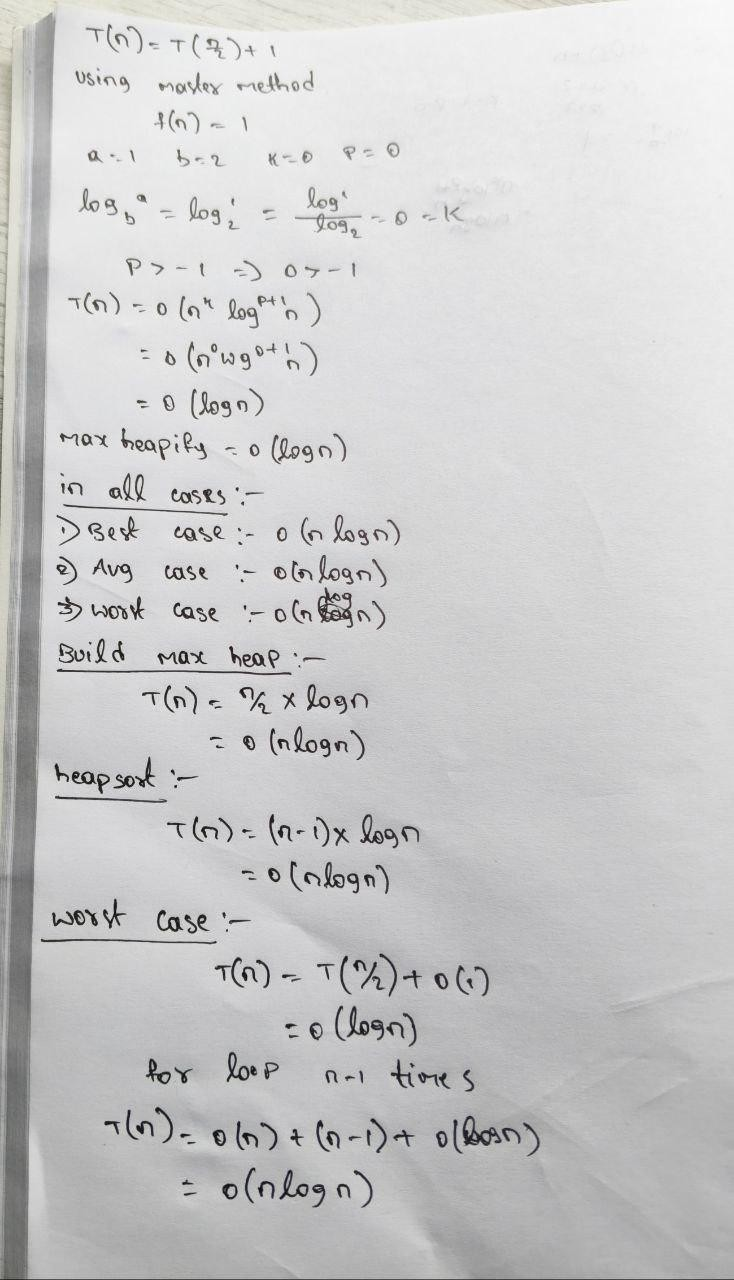 T(n) = T(n/2) + 1
Using master method
f(n) = 1
a = 1 b = 2 K = 0 P = 0
log_b^a = log_2^1 = log^1/log_2 = 0 = K
P > -1 => 0 > -1
T(n) = O(n^k log^{P+1} n)
= O(n^0 log^{0+1} n)
= O(logn)
Max heapify = O(logn)
in all cases :-
1) Best case :- O(n logn)
2) Avg case :- O(n logn)
3) worst case :- O(n logn)
Build max heap :-
T(n) = n/2 x logn
= O(nlogn)
heap sort :-
T(n) = (n-1) x logn
= O(nlogn)
worst case :-
T(n) = T(n/2) + O(1)
= O(logn)
for loop n-1 times
T(n) = O(n) + (n-1) + O(logn)
= O(nlogn)